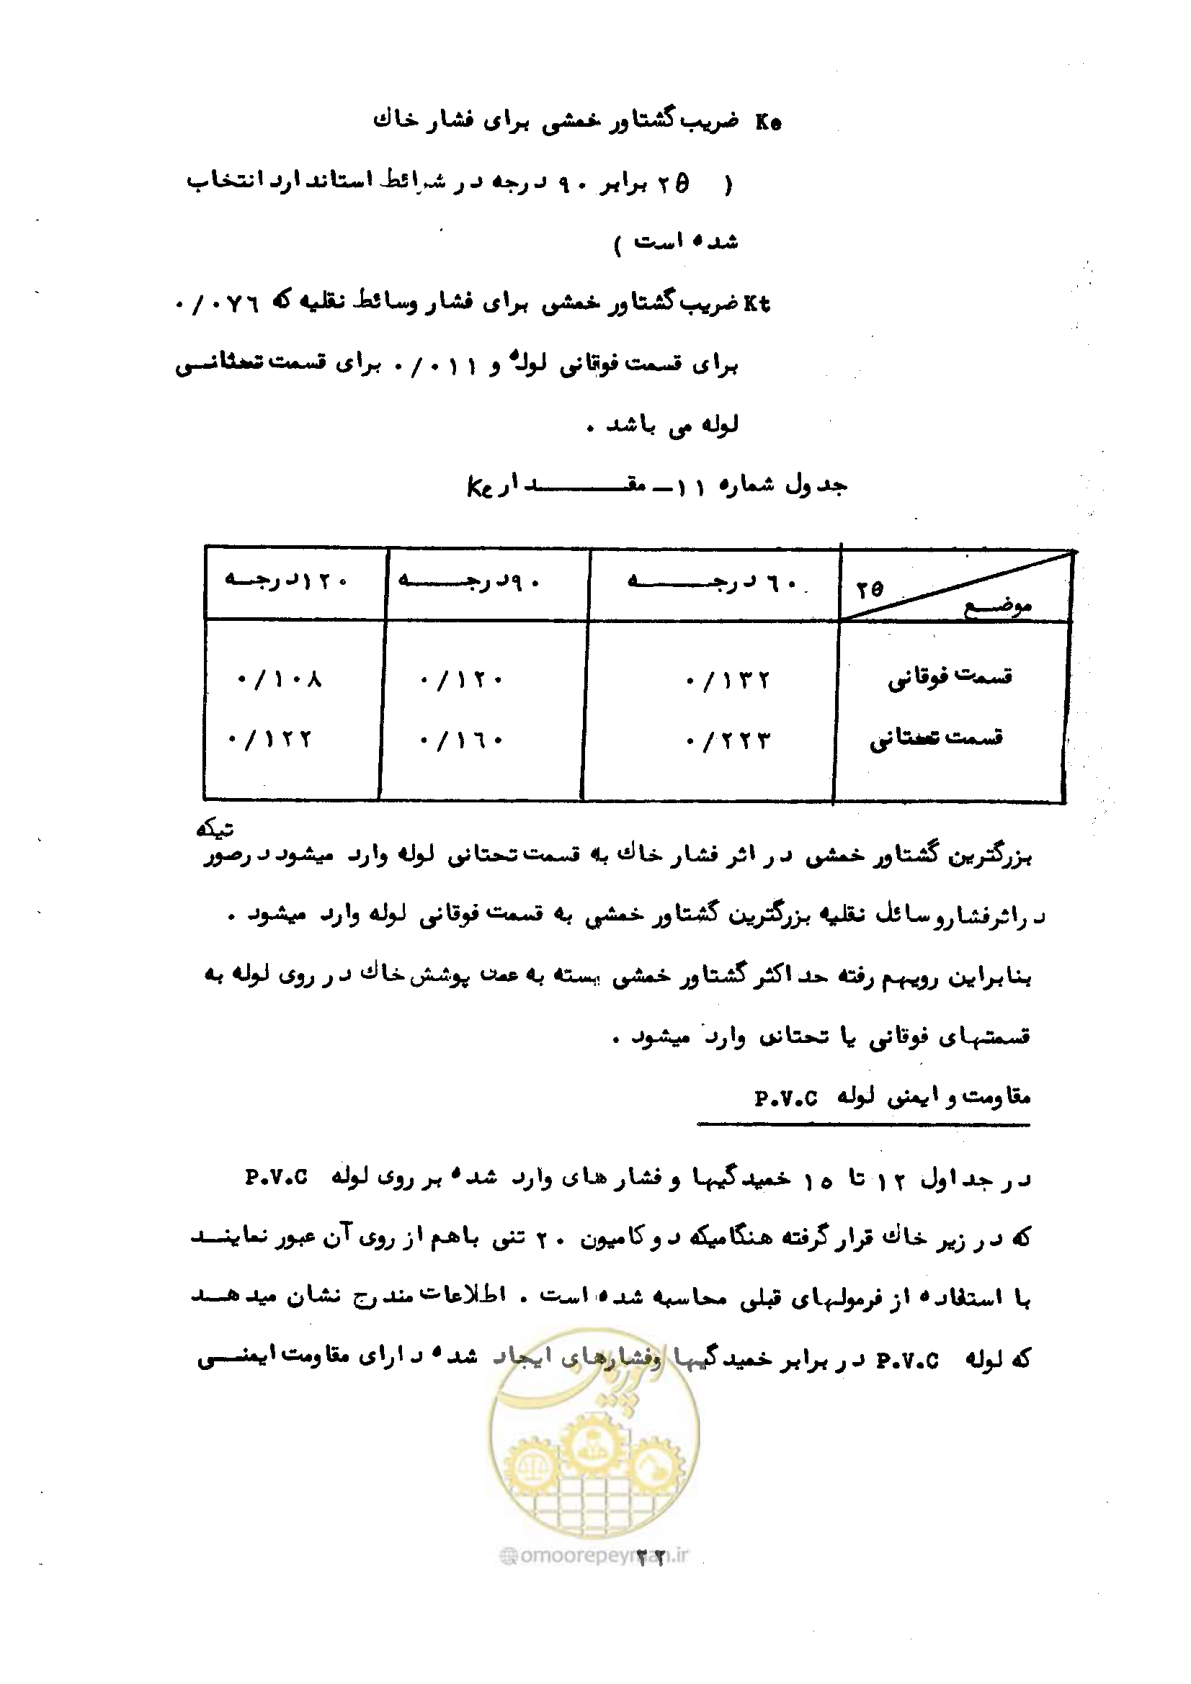 Ke ضریب گشتاور خمشی برای فشار خاك
( ۲θ برابر ۹۰ درجه در شرائط استاندارد انتخاب
شده است )
Kt ضریب گشتاور خمشی برای فشار وسائط نقلیه که ۰/۰۷٦
برای قسمت فوقانی لوله و ۰/۰۱۱ برای قسمت تحتانـی
لوله می باشد .
جدول شماره ۱۱ ـ مقـــــدار Ke
۲θ ٦۰ درجــــه ۹۰درجــــه ۱۲۰درجـه
موضـع
قسمت فوقانی ۰/۱۳۲ ۰/۱۲۰ ۰/۱۰۸
قسمت تحتانی ۰/۲۲۳ ۰/۱٦۰ ۰/۱۲۲
بزرگترین گشتاور خمشی در اثر فشار خاك به قسمت تحتانی لوله وارد میشود درصورتیکه
دراثرفشاروسائل نقلیه بزرگترین گشتاور خمشی به قسمت فوقانی لوله وارد میشود .
بنابراین رویهم رفته حداکثر گشتاور خمشی بسته به عمق پوشش خاك در روی لوله به
قسمتهای فوقانی یا تحتانی وارد میشود .
مقاومت و ایمنی لوله P.V.C
در جداول ۱۲ تا ۱٥ خمیدگیها و فشارهای وارد شده بر روی لوله P.V.C
که در زیر خاك قرار گرفته هنگامیکه دو کامیون ۲۰ تنی باهم از روی آن عبور نماینـد
با استفاده از فرمولهای قبلی محاسبه شده است . اطلاعات مندرج نشان میدهـد
که لوله P.V.C در برابر خمیدگیها وفشارهای ایجاد شده دارای مقاومت ایمنـی
امور پیمان
@omoorepeyman.ir
۲۲